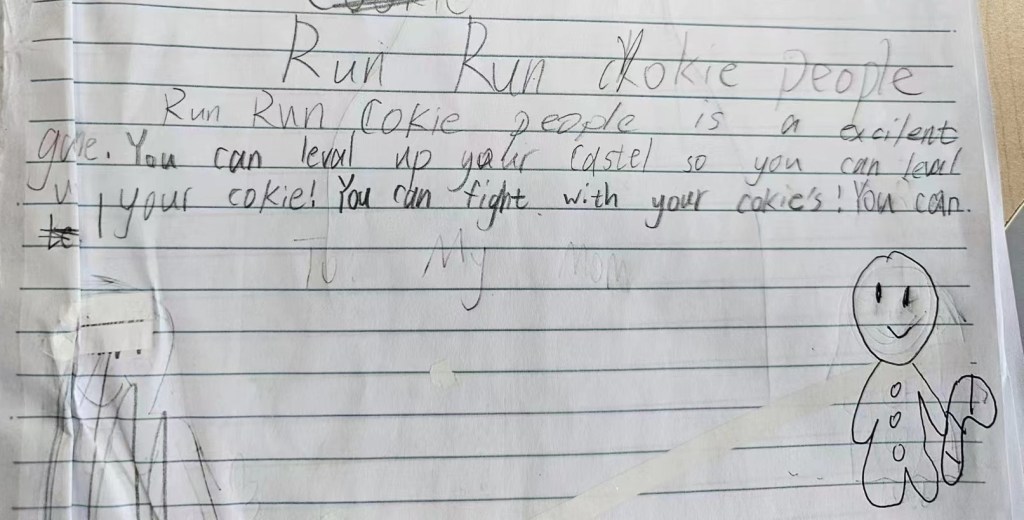 Run Run Cokie people
Run Run Cokie people is a excilent
game. You can leval up your Castel so you can leval
up your cokie! You can fight with your cokie's! You can.
To My Mom